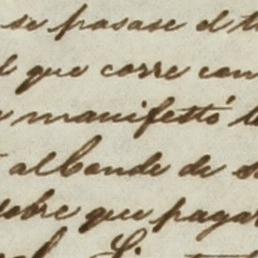 se pasase el
que corre con
manifestó
al Conde de
sobre que pagar